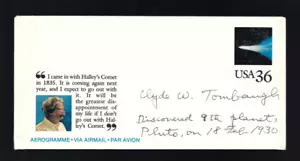 “I came in with Halley's Comet
in 1835. It is coming again next
year, and I expect to go out with
it. It will be
the greatest dis-
appointment of
my life if I don't
go out with Hal-
ley's Comet.”
USA 36
Clyde W. Tombaugh
Discovered 9th planet,
Pluto, on 18 Feb 1930
AEROGRAMME • VIA AIRMAIL • PAR AVION